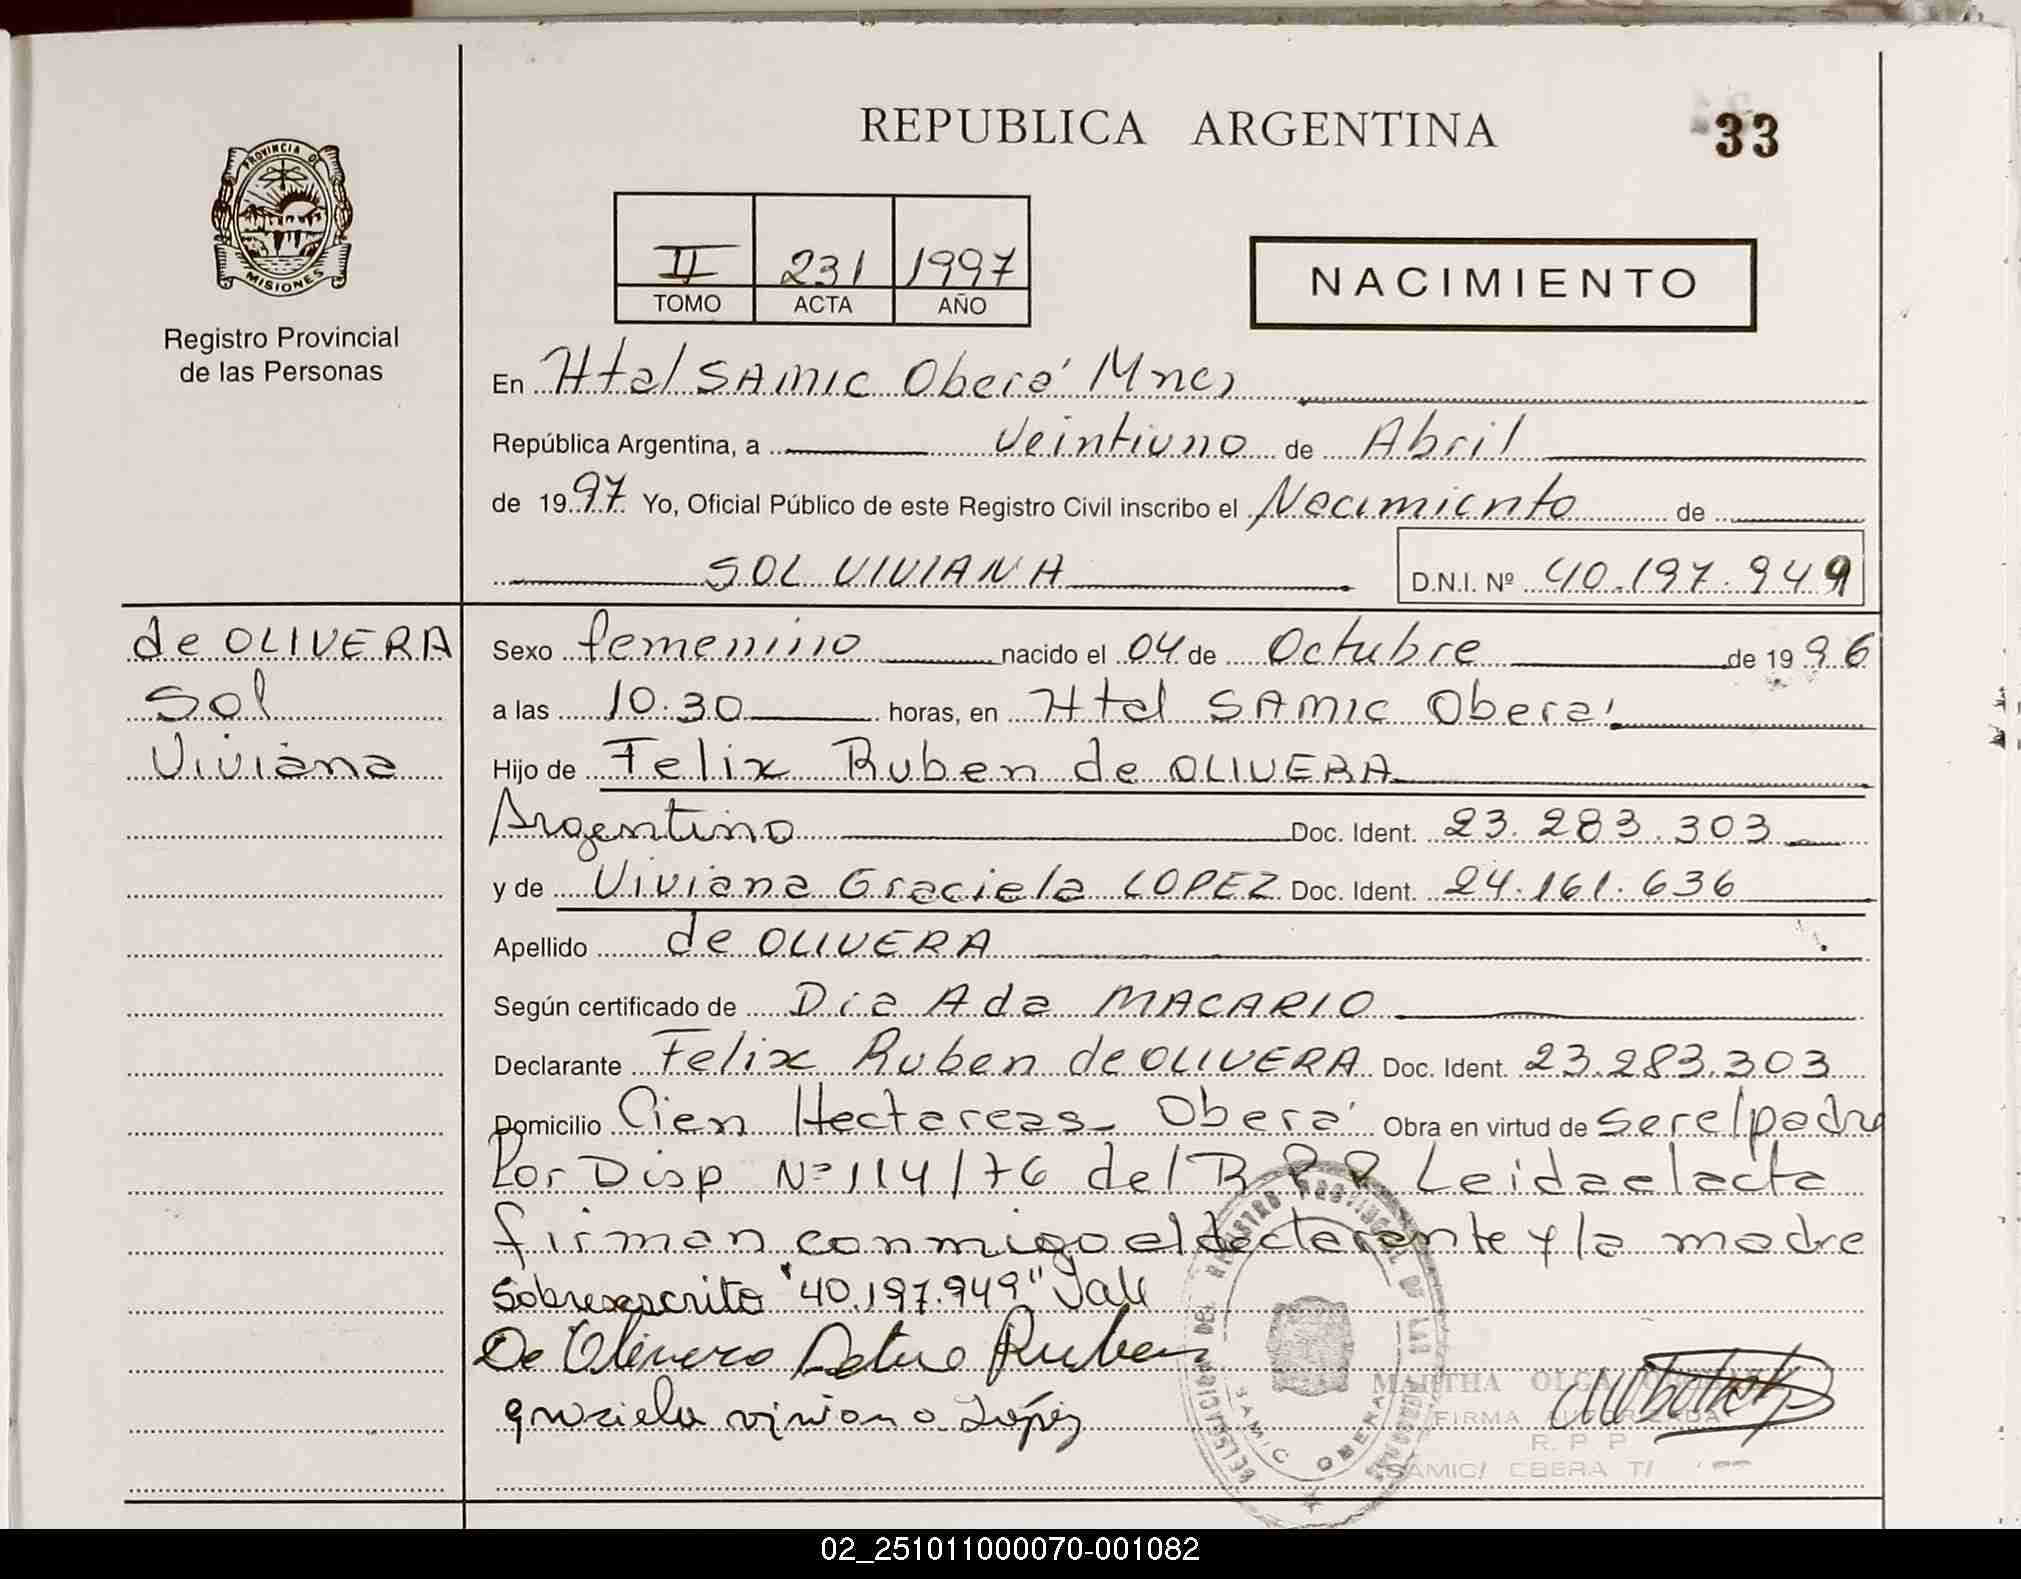 REPUBLICA ARGENTINA
33
PROVINCIA DE
MISIONES
Registro Provincial
de las Personas
II 231 1997
TOMO ACTA AÑO
NACIMIENTO
En Htal SAMIC Oberá Mnes
República Argentina, a Veintiuno de Abril
de 1997 Yo, Oficial Público de este Registro Civil inscribo el Nacimiento de
SOL VIVIANA D.N.I. Nº 40.197.949
de OLIVERA
Sol
Viviana
Sexo femenino nacido el 04 de Octubre de 1996
a las 10.30 horas, en Htal SAMIC Oberá
Hijo de Felix Ruben de OLIVERA
Argentino Doc. Ident. 23.283.303
y de Viviana Graciela LOPEZ Doc. Ident. 24.161.636
Apellido de OLIVERA
Según certificado de Dra Ada MACARIO
Declarante Felix Ruben de OLIVERA Doc. Ident. 23.283.303
Domicilio Cien Hectareas - Oberá Obra en virtud de ser el padre
Por Disp Nº 114/76 del R P P Leida el acta
firman conmigo el declarante y la madre
Sobreescrito "40.197.949" Vale
De Olivera Ruben
graciela viviana López
MARTHA OLGA
FIRMA AUTORIZADA
R. P. P
SAMIC/ OBERA T/
SAMIC OBERA
02_251011000070-001082